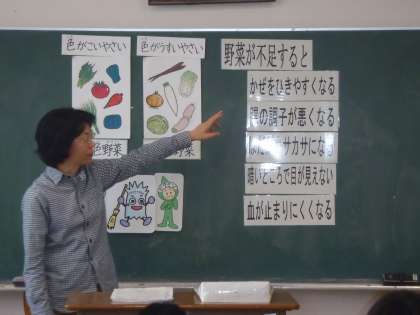 色がこいやさい
色がうすいやさい
野菜が不足すると
かぜをひきやすくなる
腸の調子が悪くなる
カサカサになる
暗いところで目が見えない
血が止まりにくくなる
色野菜
野菜